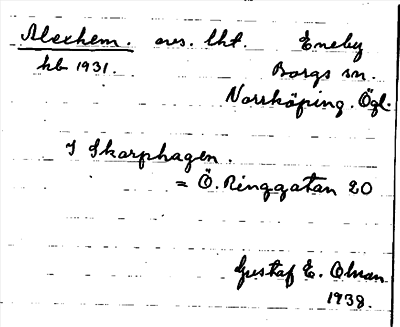 Alexhem. avs. lht. Eneby
hb 1931. Borgs sn.
Norrköping. Ögl.
I Skarphagen.
= Ö. Ringgatan 20
Gustaf E. Olsson
1938.